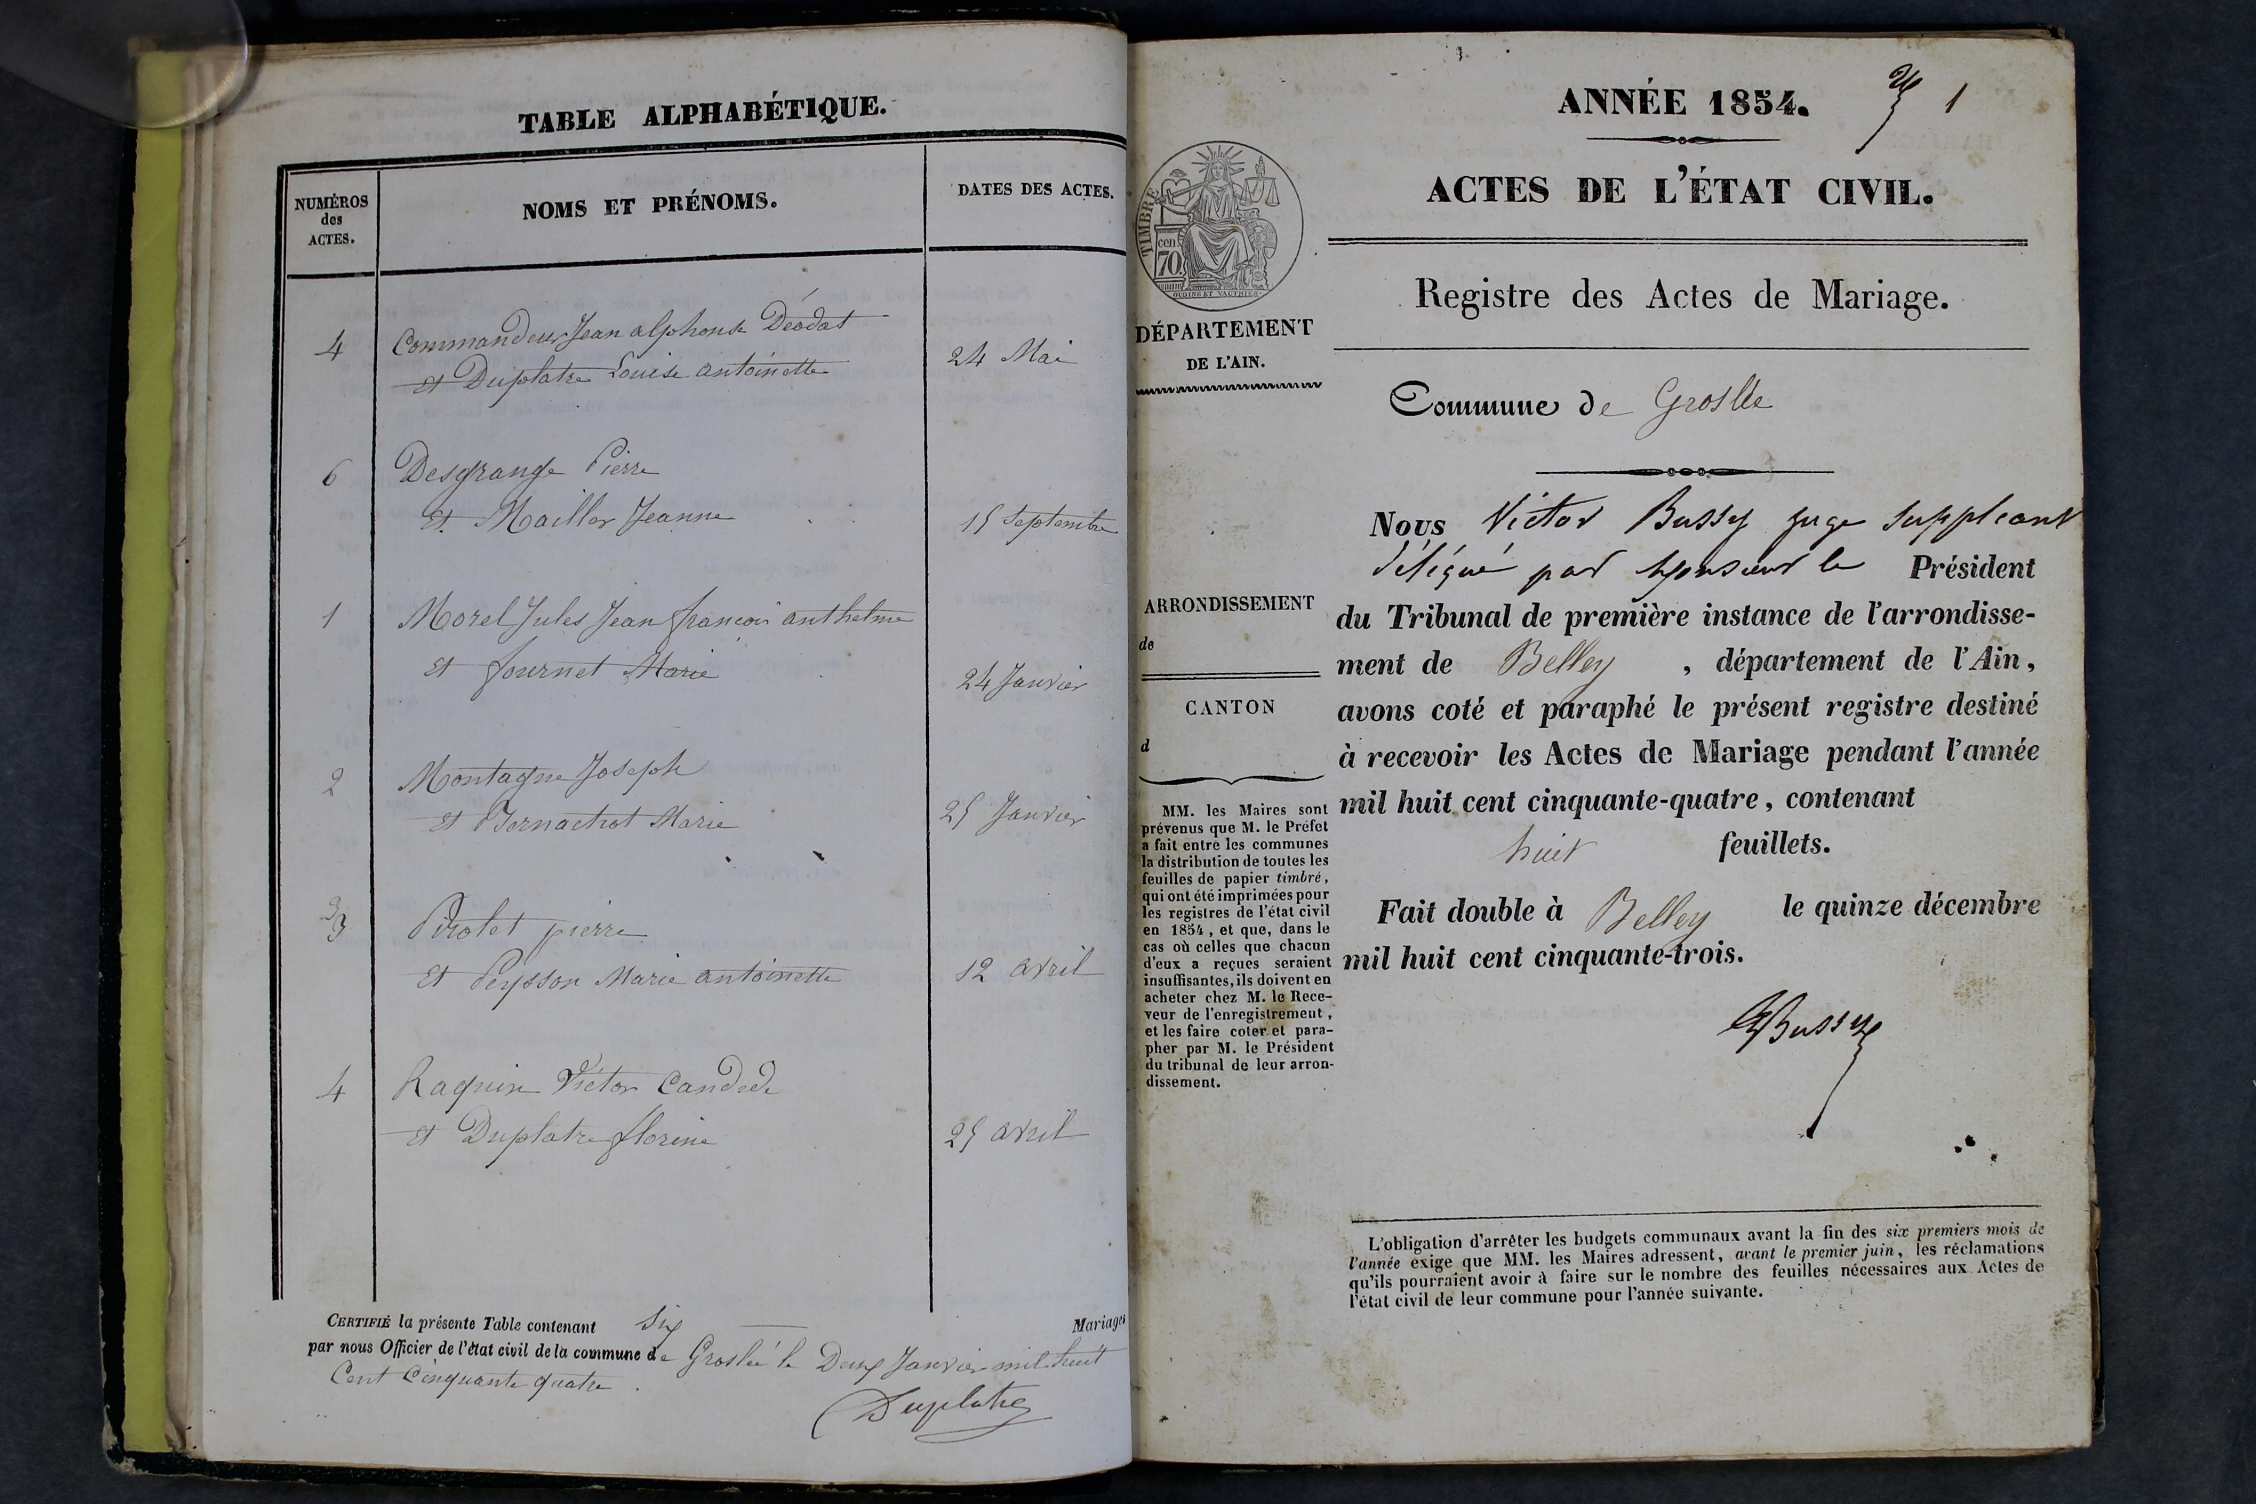 TABLE ALPHABÉTIQUE.
NUMÉROS
des
ACTES.
NOMS ET PRÉNOMS.
DATES DES ACTES.
4 Commandeur Jean alphonse Déodat
et Duplatre Louise antoinette 24 Mai
6 Desgrange Pierre
et Mailler Jeanne 15 Septembre
1 Morel Jules Jean françois anthelme
et fournet Marie 24 Janvier
2 Montagne Joseph
et Bernachot Marie 25 Janvier
3 Pirolet pierre
et Peysson Marie antoinette 12 avril
4 Raquin Victor Candide
et Duplatre florine 25 avril
CERTIFIÉ la présente Table contenant six Mariages
par nous Officier de l'état civil de la commune de Groslée le Deux Janvier mil huit
Cent Cinquante quatre
Duplatre
ANNÉE 1854.
1
ACTES DE L'ÉTAT CIVIL.
TIMBRE
cen
70
OUDINE ET VAUTHIER
Registre des Actes de Mariage.
DÉPARTEMENT
DE L'AIN.
Commune de Groslée
Nous Victor Bussy juge suppleant
délégué par Monsieur le Président
du Tribunal de première instance de l'arrondisse-
ment de Belley, département de l'Ain,
avons coté et paraphé le présent registre destiné
à recevoir les Actes de Mariage pendant l'année
mil huit cent cinquante-quatre, contenant
huit feuillets.
Fait double à Belley le quinze décembre
mil huit cent cinquante-trois.
Bussy
ARRONDISSEMENT
de
CANTON
d
MM. les Maires sont
prévenus que M. le Préfet
a fait entre les communes
la distribution de toutes les
feuilles de papier timbré,
qui ont été imprimées pour
les registres de l'état civil
en 1854, et que, dans le
cas où celles que chacun
d'eux a reçues seraient
insuffisantes, ils doivent en
acheter chez M. le Rece-
veur de l'enregistrement,
et les faire coter et para-
pher par M. le Président
du tribunal de leur arron-
dissement.
L'obligation d'arrêter les budgets communaux avant la fin des six premiers mois de
l'année exige que MM. les Maires adressent, avant le premier juin, les réclamations
qu'ils pourraient avoir à faire sur le nombre des feuilles nécessaires aux Actes de
l'état civil de leur commune pour l'année suivante.